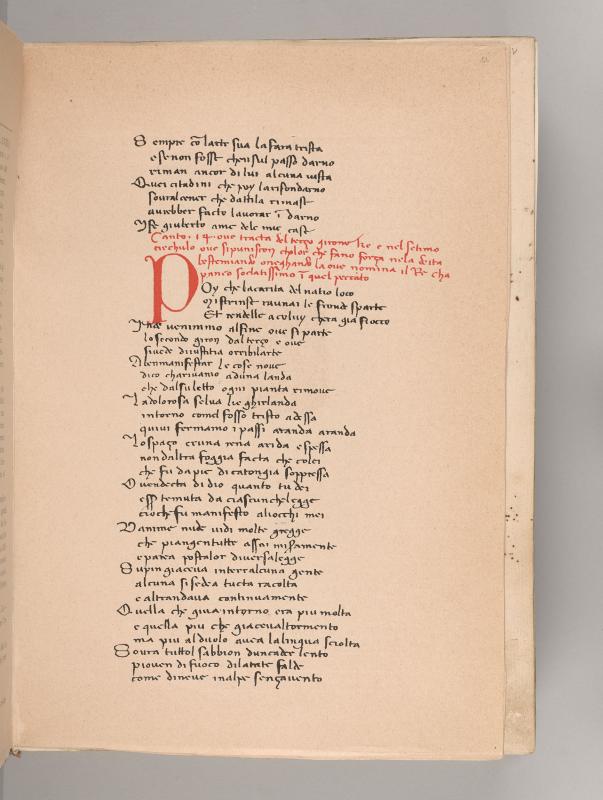 Sempre cō larte sua la fara trista
e se non fosse chen sul passo darno
riman ancor di lui alcuna vista
Quei citadini che poy larifondarno
sovralcener che dattila rimase
avrebber facto lavorar ī darno
Canto. 14. ove tracta del terço girone
e nel setimo
cierchulo ove sipuniscon choloro che fano força nela deita
bestemiando e neghando la ove nomina il Re cha
paneo sceleratissimo ī quel peccato
Poy che lacarita del natio loco
mistrinse raunai le fronde sparte
Et rendelle acoluy chera gia fioco
Inde venimmo alfine ove si parte
lo secondo giron dal terço e ove
sivede di iustitia orribilarte
Abenmanifestar le cose nove
dico charivamo aduna landa
che dalsuletto ogni pianta rimove
La dolorosa selva lie ghirlanda
intorno comel fosso tristo adessa
quivi fermamo i passi aranda aranda
Lo spaço eruna rena arida e spessa
non daltra foggia facta che colei
che fu dapie di caton gia soppressa
O vendecta di dio quanto tu dei
esser temuta da ciascun che legge
cio che fu manifesto aliocchi mei
Danime nude vidi molte gregge
che piangen tutte assai miseramente
e parea posta lor diversa legge
Supin giaceva interra alcuna gente
alcuna si sedea tucta racolta
e altra andava continuamente
Quella che giva intorno era piu molta
e quella piu che giaceva al tormento
ma piu al duolo avea la lingua sciolta
Sovra tuttol sabbion dun cader lento
pioven di fuoco dilatate falde
come di neve in alpe sença vento